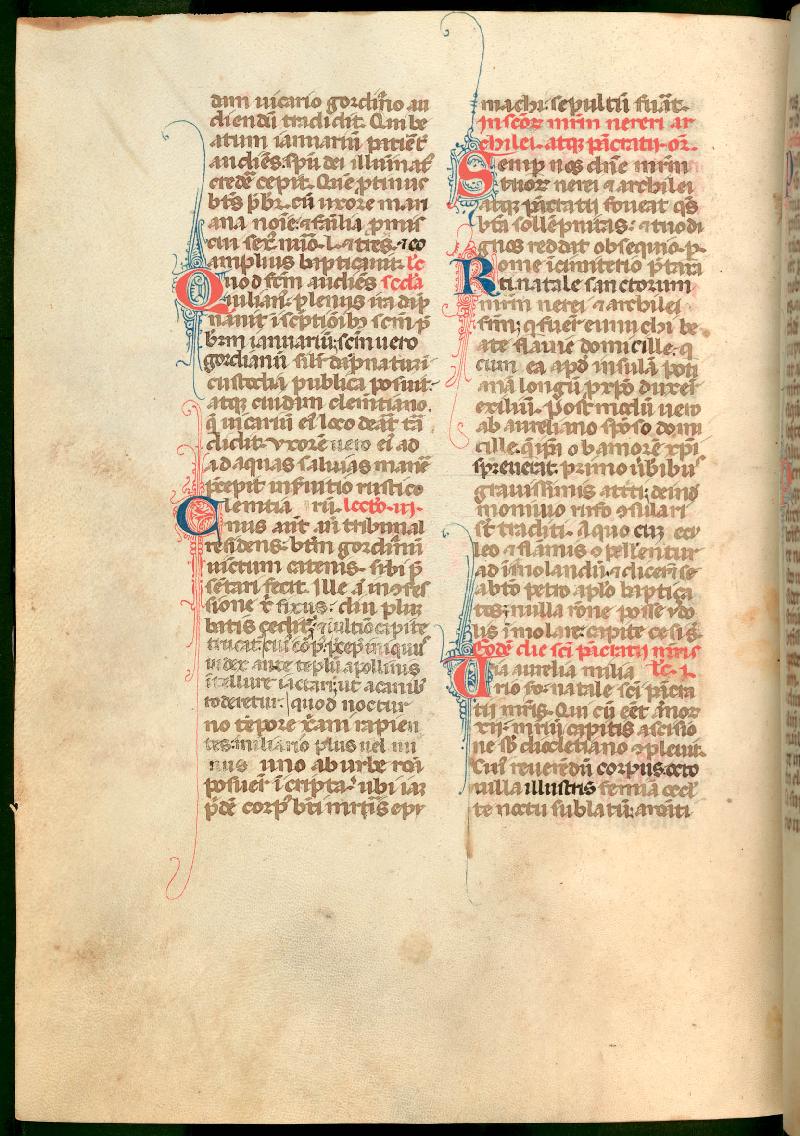 dum uicario gordiano au
diendū tradidit. Qui be
atum ianuariū p̄rƀrēt
audiēs. spū dei illuminaƚ
credē cepit. Quē ꝓtinus
bt̄s pƀr. cū uxore mari
ana noīe. ⁊ familia promis
cui sex miō. l. ⁊ tres. ⁊ eo
amplius baptiçauit. lc̄
Quod factm̄ audiēs sc̄da
iulian⁹. plenus ira dāp
nauit ī sceptiōibȝ scm̄ p̄
bm̄ ianuariū; scm̄ uero
gordianū silr̄ dāpnatū ī
custodia publica posuit.
atqȝ eiudum clemtiano.
q̄ uicariū eī loco deāt tra
didit. vxorē uero eī ad
ad aquas saluias manē
p̄cepit inseruitio rustico
Clemtia rū. lectō. iii.
nus aūt in tribunal
residens. btm̄ gordianū
uictum catenis. sibi p̄
sētari fecit. Ille ī confes
sione x̄ fixus. diu plūƀ
batis cedit̄; ⁊ ultīo capite
trūcat̄. cui⁹ corp⁹ p̄cep̄ iniquus
iudex ante teplū apollinis
ī tellure iactari; ut a canibȝ
roderetur. quod noctur
no tēpore xp̄iani rapien
tes. miliario plus uel mi
nus uno ab urbe roma
posuer̄t ī cripta. ubi iam
p̄dē corp⁹ bti mr̄tis epy
machi. sepultū fuāt.
In scōꝝ mr̄m nerei ar
chilei. atqȝ pācratii. or.
Semp nos dn̄e mr̄m
tuoꝝ nerei ⁊ archilei
atqȝ pācratii foueat qs̄
bt̄a sollēpnitas. ⁊ tuo di
gnos reddat obsequio. p.
Rome ī cimiterio p̄texta
ti. natale sanctorum
mr̄m nerei ⁊ archilei
fr̄m; q̄ fuer̄t eunuchi be
ate flauie domicille. q̄
cum ea apd̄ insulā pon
anā longū ꝓ xp̄o duxer̄t
exiliū. Post modū uero
ab aureliano spōso domi
cille. q̄ ip̄i ob amorē xp̄i
spreuerat. primo ūƀibus
grauissimis atriti; deinde
momiuo rufo ɔsulari
st̄ traditi. A quo cū ecu
leo ⁊ flāmis ɔpellentur
ad īmolandū. ⁊ dicerēt se
a bt̄o petro aplo baptiça
tos; nulla rōne posse ydo
lis īmolare. capite cesi s̄.
Eodē die sc̄i pācratii mr̄is
Uia aurelia milia lc̄. i.
rio so. natale sc̄i pācra
tii mr̄is. Qui cū eēt ānoꝝ
xiiii. mr̄iū capitis ascisio
ne sƀ diocletiano ɔpleuit.
Cui⁹ reuerēdū corpus. octo
uilla illustris femīa occl̄
te noctu sublatū; aroīti